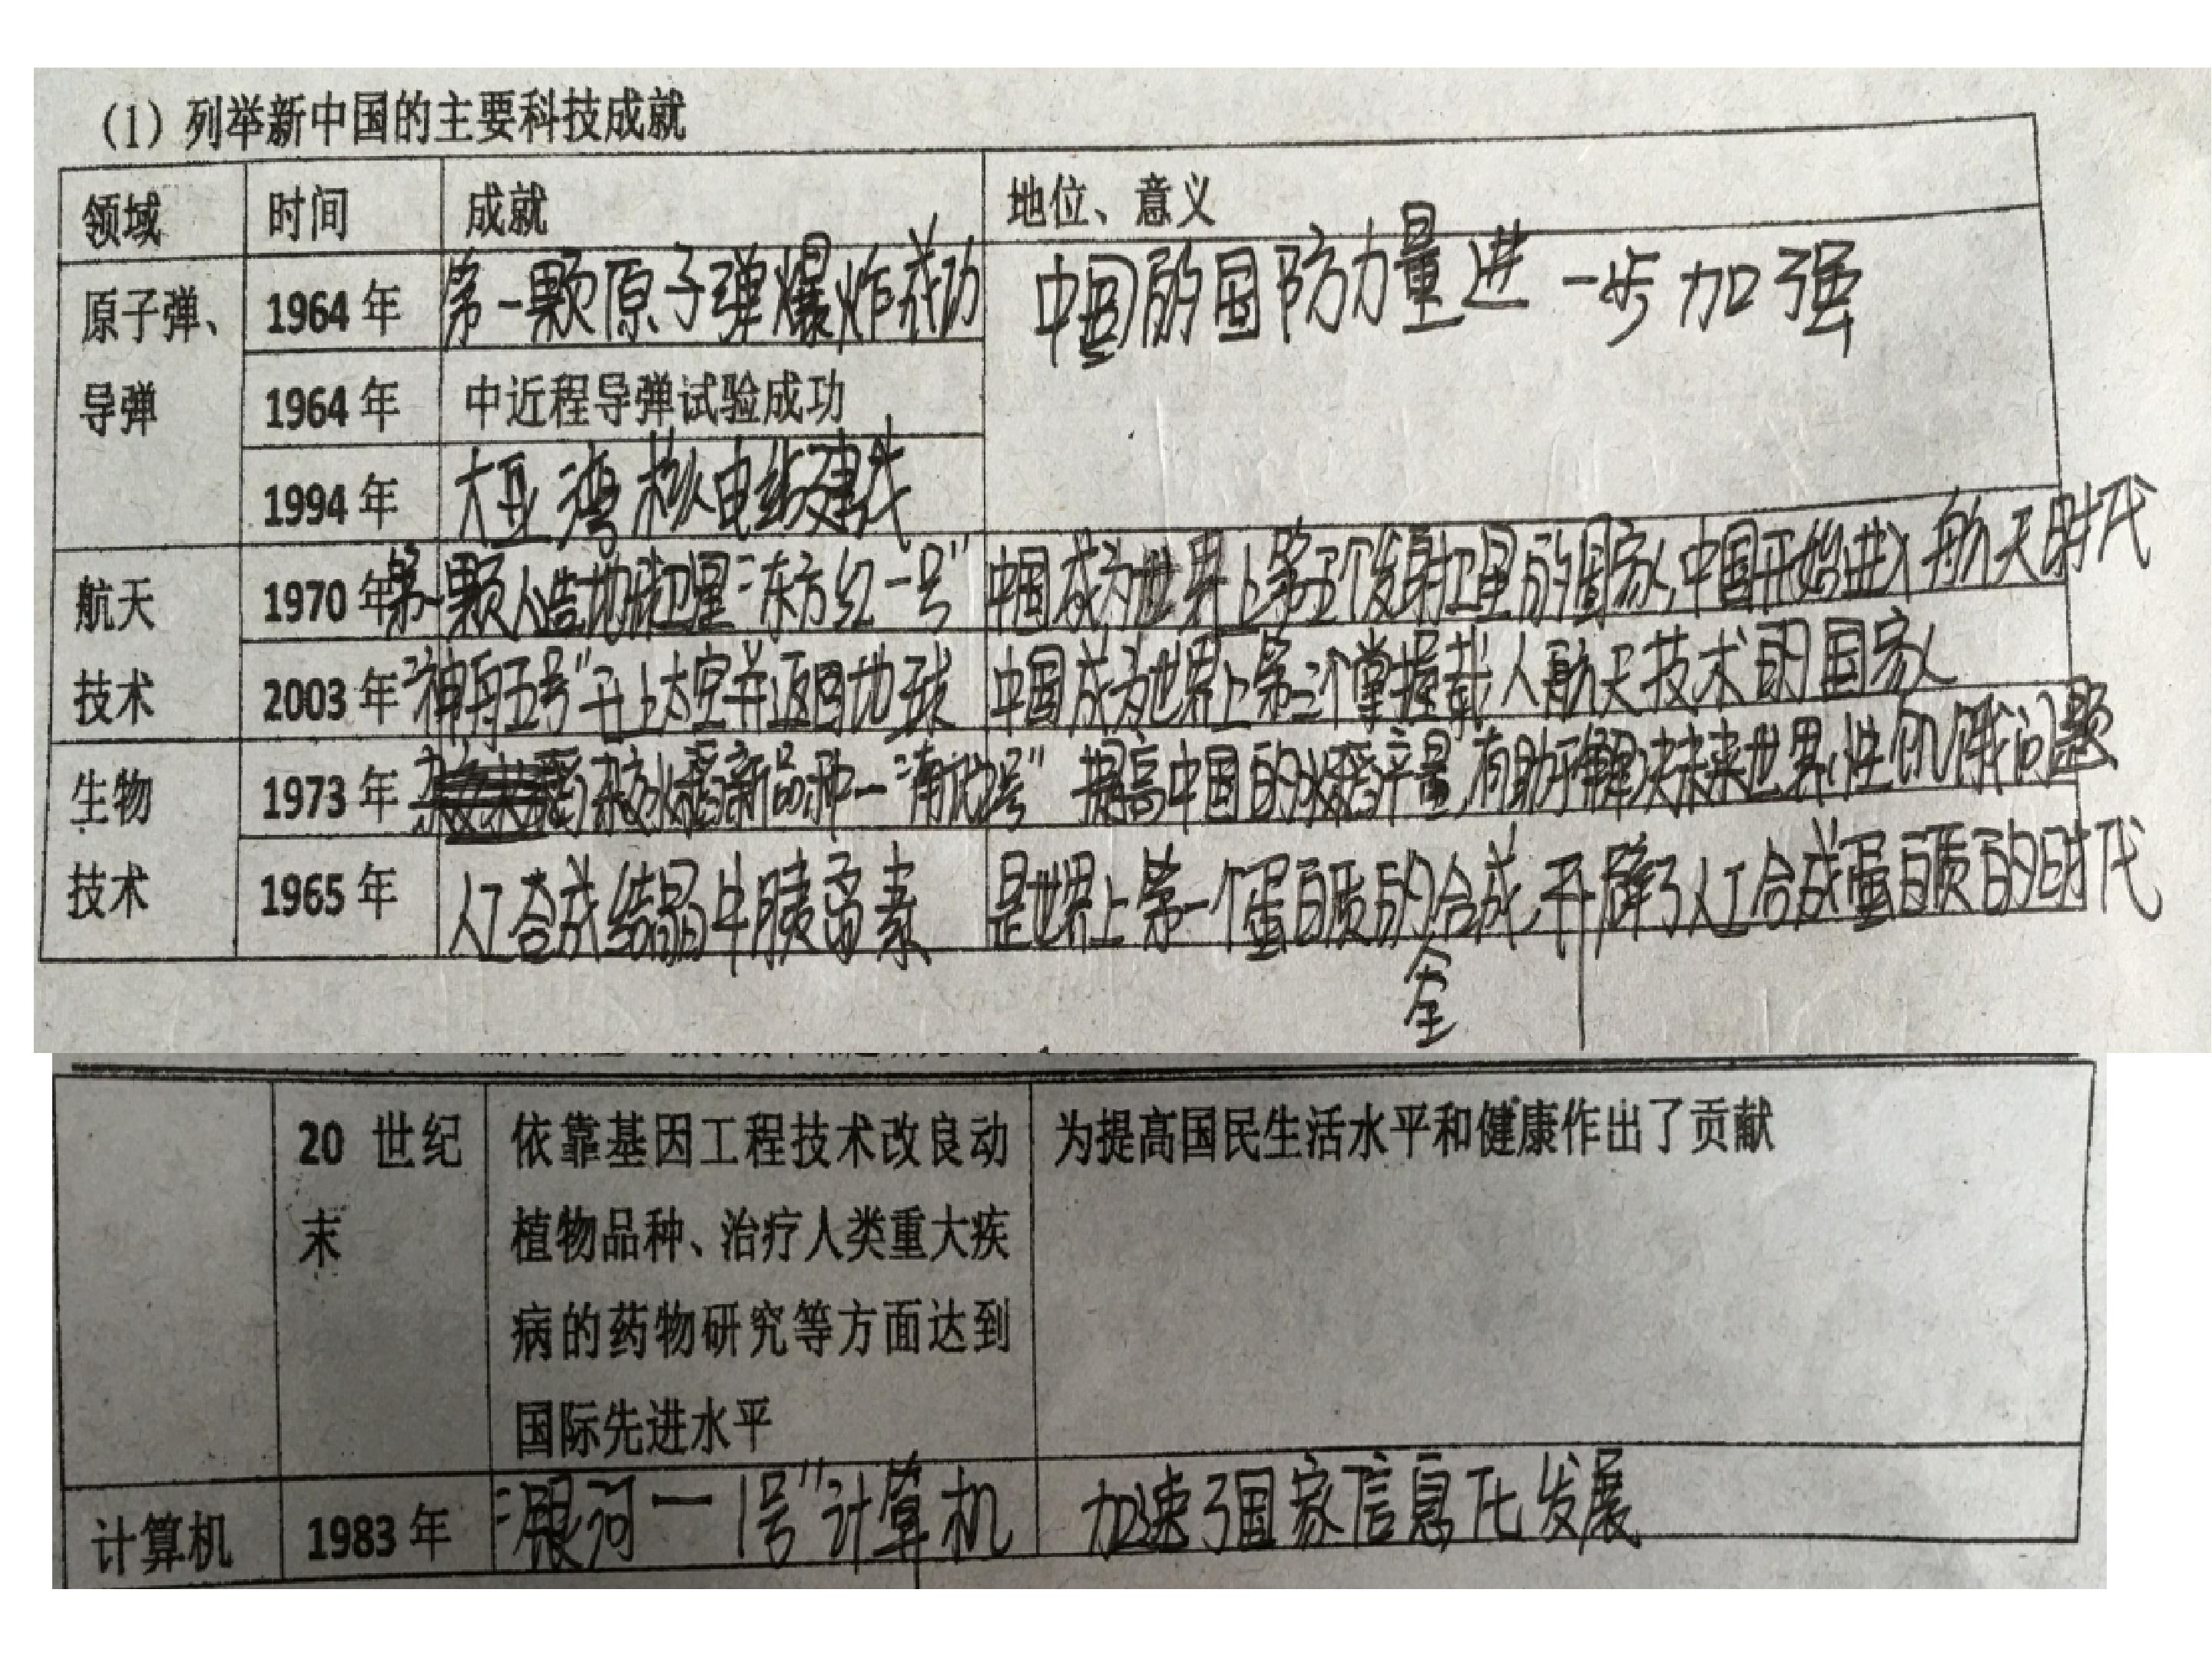 （1）列举新中国的主要科技成就
领域 时间 成就 地位、意义
原子弹、 1964年 第一颗原子弹爆炸成功 中国的国防力量进一步加强
导弹 1964年 中近程导弹试验成功
1994年 大亚湾核电站建成
航天 1970年 第一颗人造地球卫星“东方红一号” 中国成为世界上第五个发射卫星的国家,中国开始进入航天时代
技术 2003年 “神舟五号”升上太空并返回地球 中国成为世界上第三个掌握载人航天技术的国家
生物 1973年 杂交水稻新品种—“南优2号” 提高中国的水稻产量,有助于解决未来世界性饥饿问题
技术 1965年 人工合成结晶牛胰岛素 是世界上第一个蛋白质的合成,开辟了人工合成蛋白质的时代
全
20 世纪 依靠基因工程技术改良动 为提高国民生活水平和健康作出了贡献
末 植物品种、治疗人类重大疾
病的药物研究等方面达到
国际先进水平
计算机 1983年 “银河—1号”计算机 加速了国家信息化发展